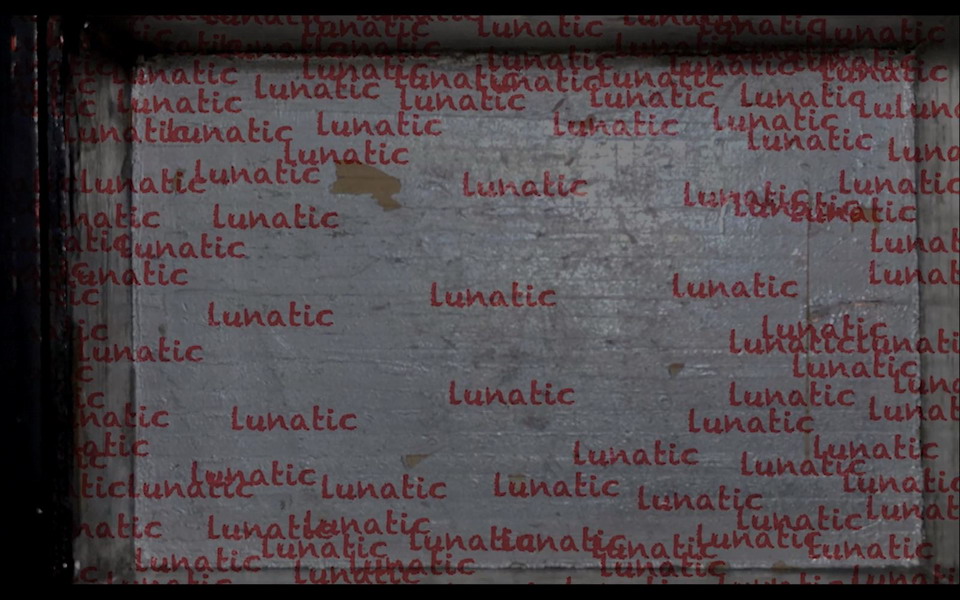 Lunatic Lunatic Lunatic
Lunatic Lunatic
Lunatic Lunatic Lunatic Lunatic
Lunatic Lunatic Lunatic Lunatic
Lunatic Lunatic Lunatic Lunatic
Lunatic Lunatic Lunatic Lunatic
Lunatic Lunatic
Lunatic Lunatic Lunatic Lunatic
Lunatic Lunatic Lunatic
Lunatic Lunatic
Lunatic
Lunatic
Lunatic Lunatic
Lunatic Lunatic
Lunatic Lunatic Lunatic
Lunatic
Lunatic Lunatic
Lunatic Lunatic
Lunatic Lunatic
Lunatic Lunatic
Lunatic Lunatic Lunatic
Lunatic Lunatic
Lunatic Lunatic Lunatic
Lunatic Lunatic Lunatic Lunatic Lunatic
Lunatic Lunatic Lunatic Lunatic